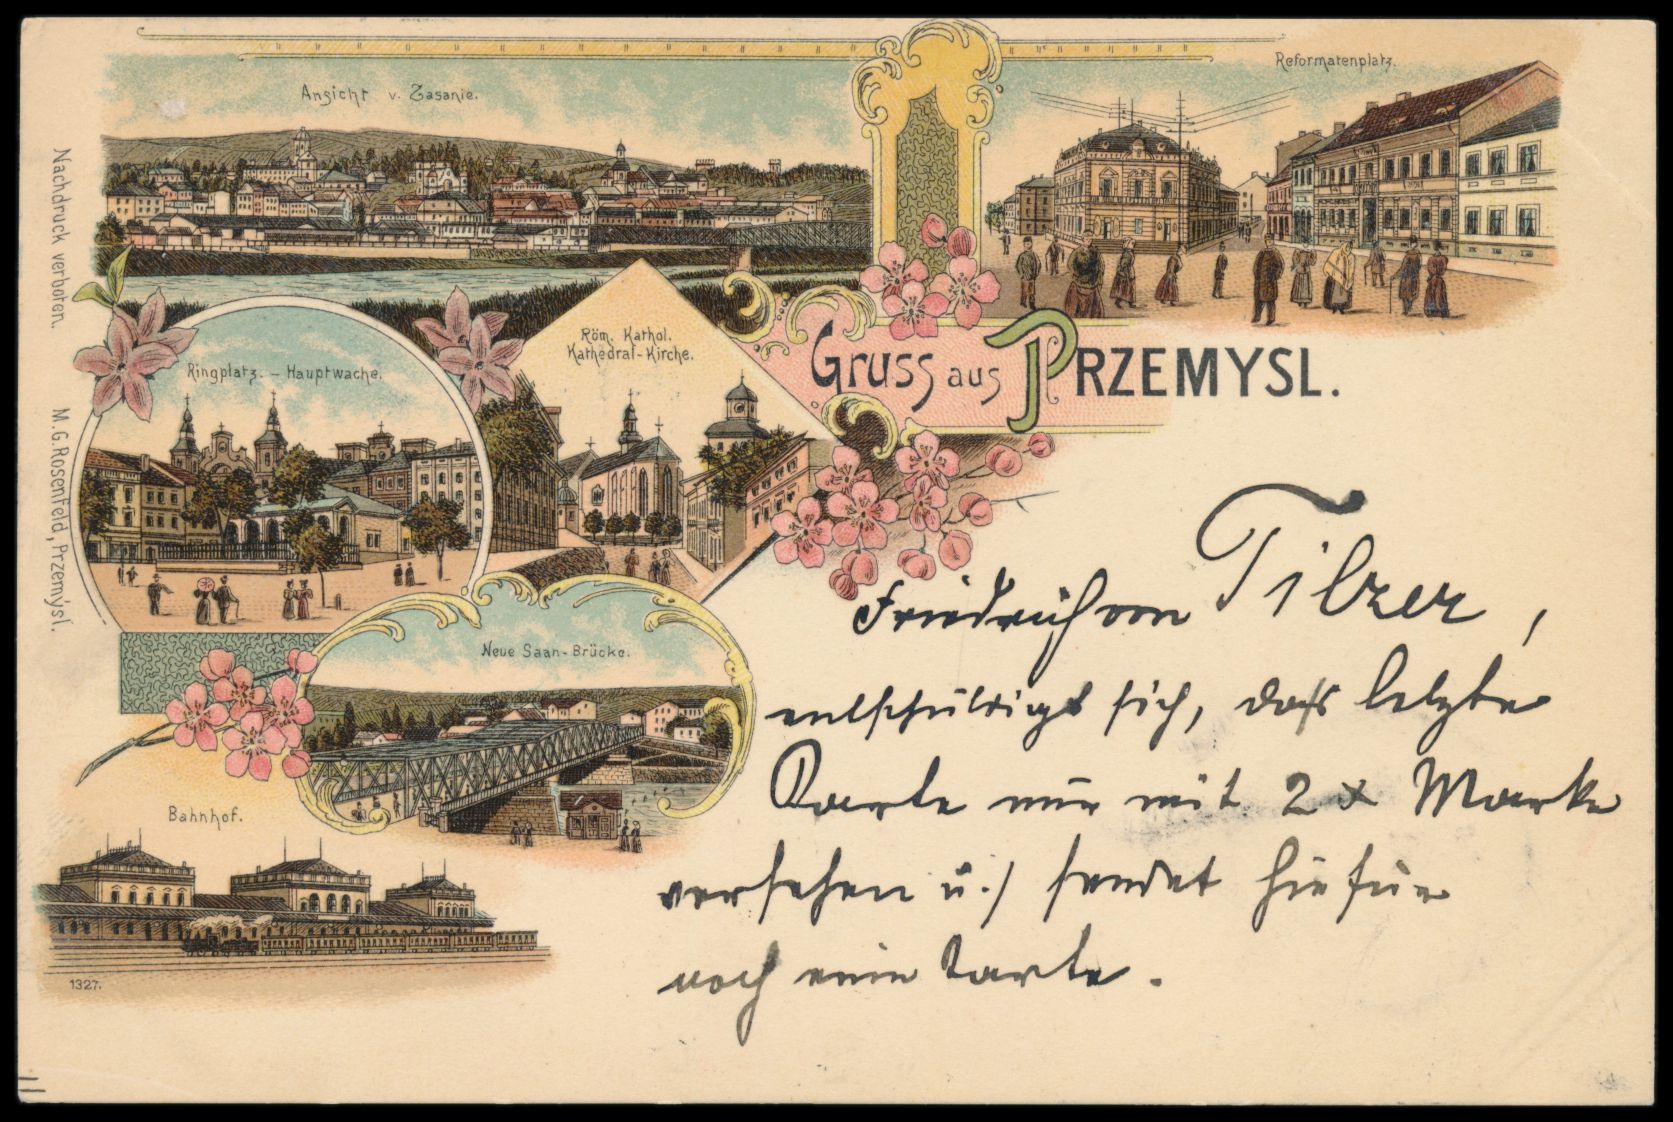 Ansicht v. Zasanie.
Reformatenplatz.
Nachdruck verboten. M.G. Rosenfeld, Przemýsl.
Röm. Kathol.
Kathedral-Kirche.
Ringplatz. - Hauptwache.
Gruss aus PRZEMYSL.
Neue Saan-Brücke.
Bahnhof.
1327.
Friedrich von Tilzer,
entschuldigt sich, dass letzte
Karte nur mit 2 x Marke
versehen u. / sendet hiefür
noch eine Karte.